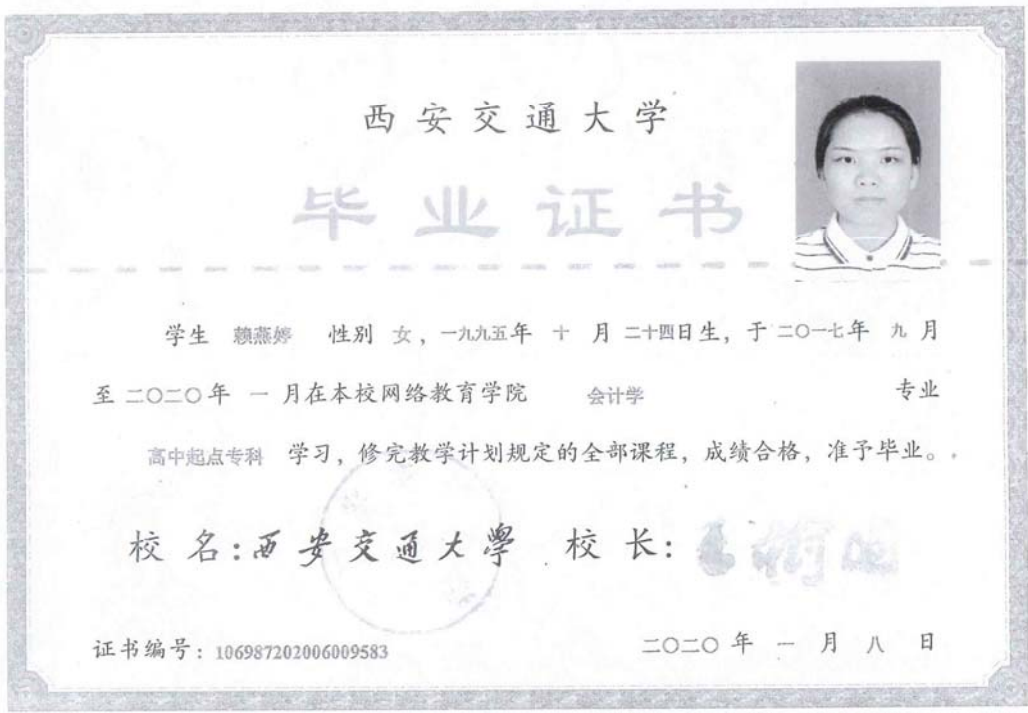 西安交通大学
毕业证书
学生 赖燕婷 性别 女，一九九五年 十 月 二十四日生，于二〇一七年 九 月
至二〇二〇年 一 月在本校网络教育学院 会计学 专业
高中起点专科 学习，修完教学计划规定的全部课程，成绩合格，准予毕业。
校 名：西安交通大學 校 长：
证书编号：106987202006009583 二〇二〇 年 一 月 八 日